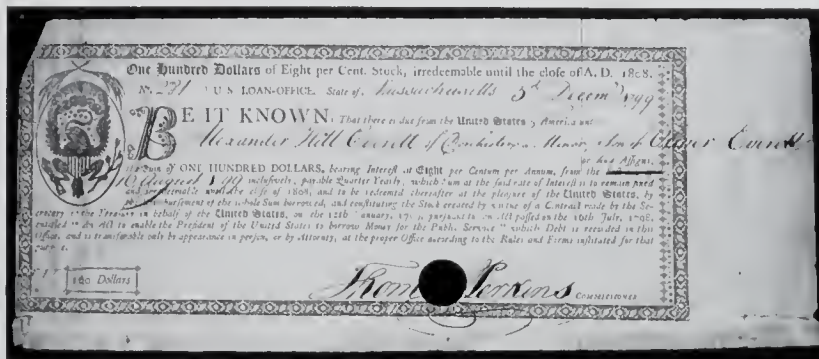 One Hundred Dollars of Eight per Cent. Stock, irredeemable until the close of A. D. 1808.
No. 281 U S LOAN-OFFICE. State of Massachusetts 3d Decemr 1799
BE IT KNOWN, That there is due from the United States of America unto
Alexander Hill Everett of Dorchester a Minor, son of Oliver Everett
or his Assigns,
the Sum of ONE HUNDRED DOLLARS, bearing Interest at Eight per Centum per Annum, from the
August inclusively, payable Quarter Yearly, which Sum at the said rate of Interest is to remain fixed
and irredeemable until the close of 1808, and to be redeemed thereafter at the pleasure of the United States, by
reimbursement of the whole Sum borrowed, and constituting the Stock created by virtue of a Contract made by the Se-
cretary of the Treasury in behalf of the United States, on the 12th January, pursuant to an Act passed on the 16th July, 1798,
entitled "An Act to enable the President of the United States to borrow Money for the Public Service" which Debt is recorded in this
Office, and is transferable only by appearance in person, or by Attorney, at the proper Office according to the Rules and Forms instituted for that
purpose.
100 Dollars
Thom Perkins COMMISSIONER